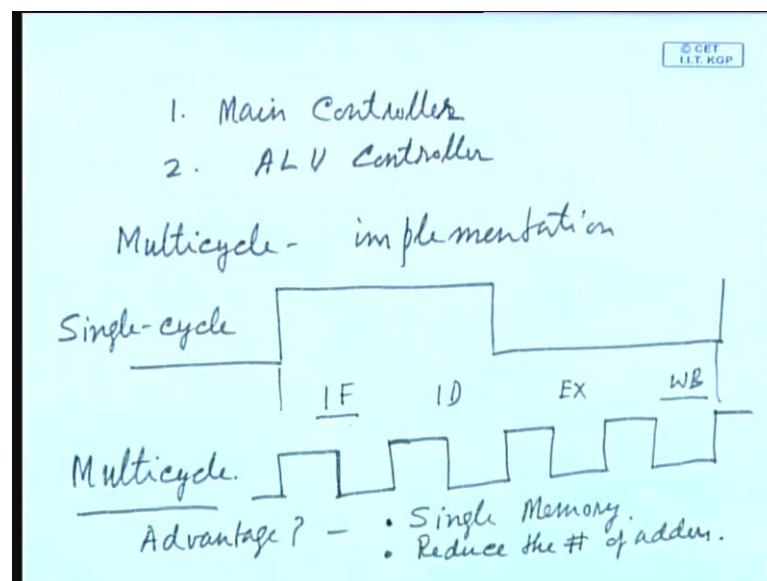 © CET
I.I.T. KGP
1. Main Controller
2. ALU Controller
Multicycle - implementation
Single-cycle
IF ID EX WB
Multicycle.
Advantage? - • Single Memory.
• Reduce the # of adders.